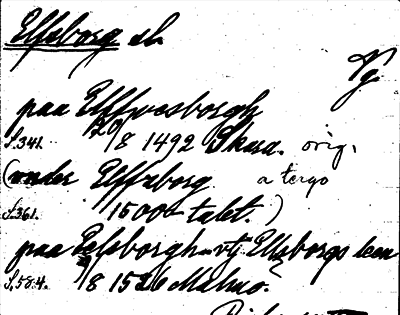 Elfsborg sl.
Vg
paa Elffwesborgh
S.341. 20/8 1492 Skara. orig.
(under Elffzborg a tergo
S.361. 1500-talet.)
paa Elsborgh-vtj Elsborgs leen
S.584. 9/8 1526 Malmø.